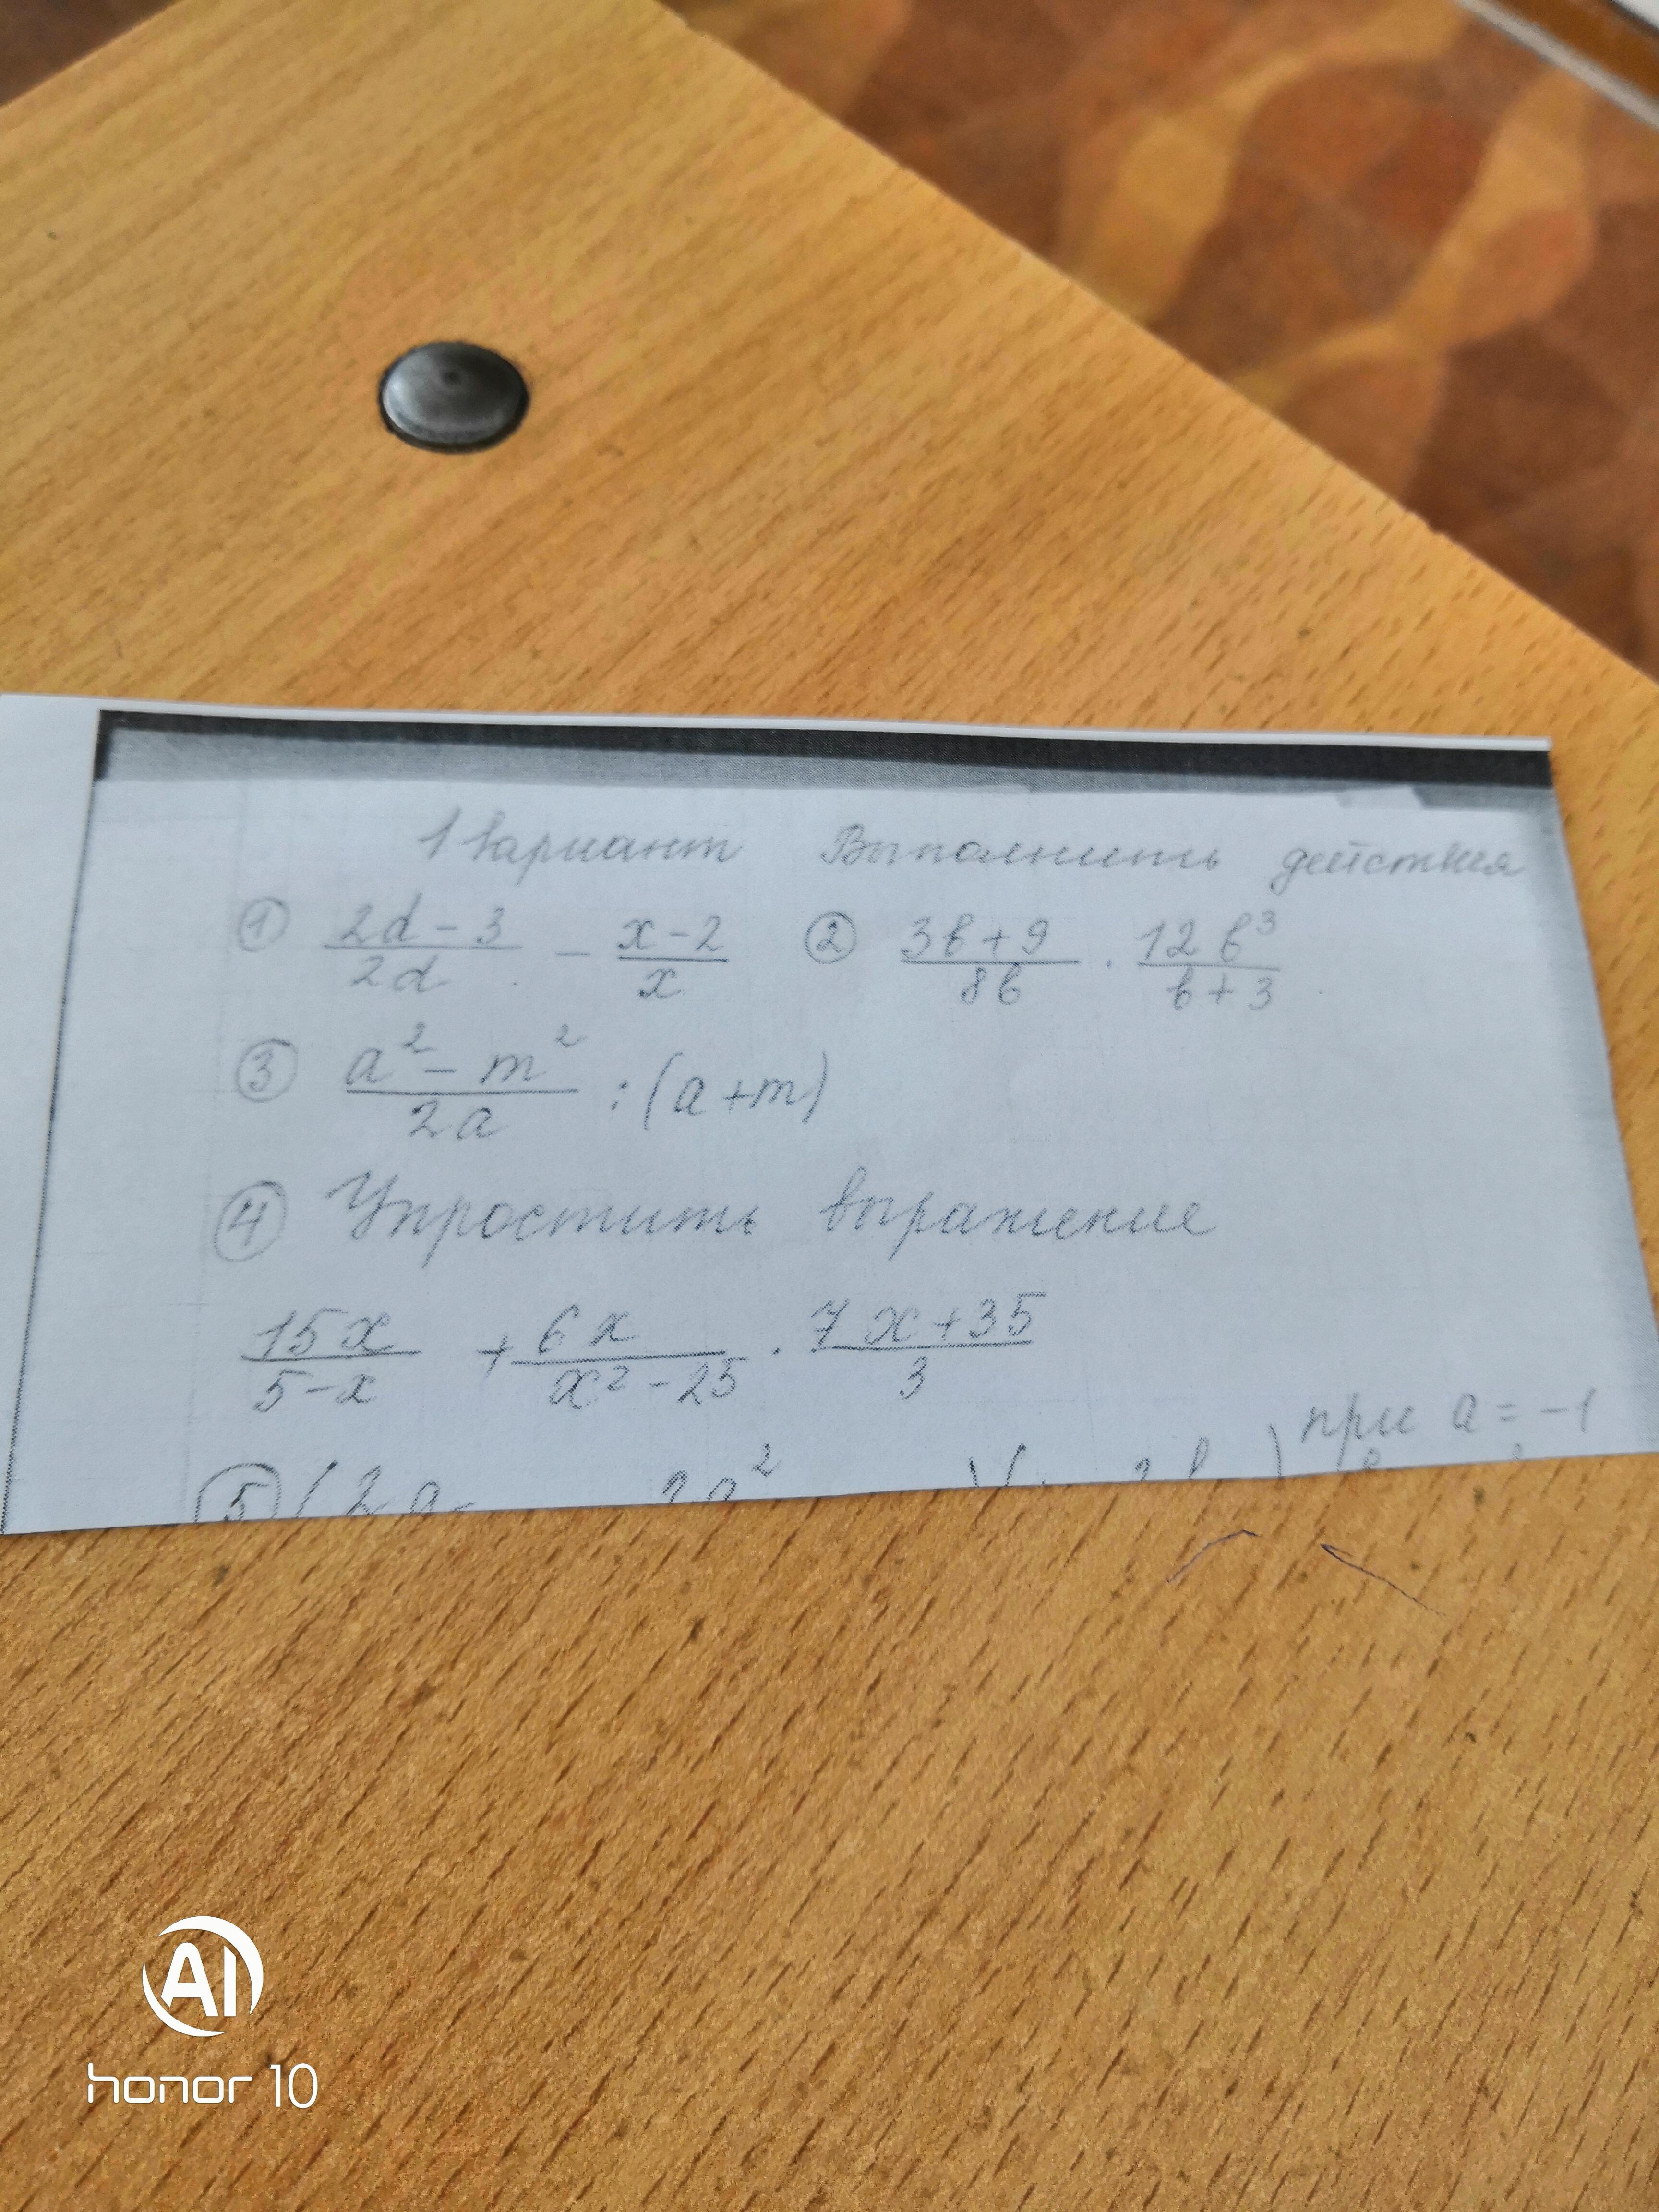 1 Вариант Выполнить действия
① (2d - 3)/(2d) - (x - 2)/x ② (3b + 9)/(8b) · (12b³)/(b + 3)
③ (a² - m²)/(2a) : (a + m)
④ Упростить выражение
(15x)/(5 - x) + (6x)/(x² - 25) · (7x + 35)/3
при a = -1
⑤ (2a - 2a²
AI
honor 10